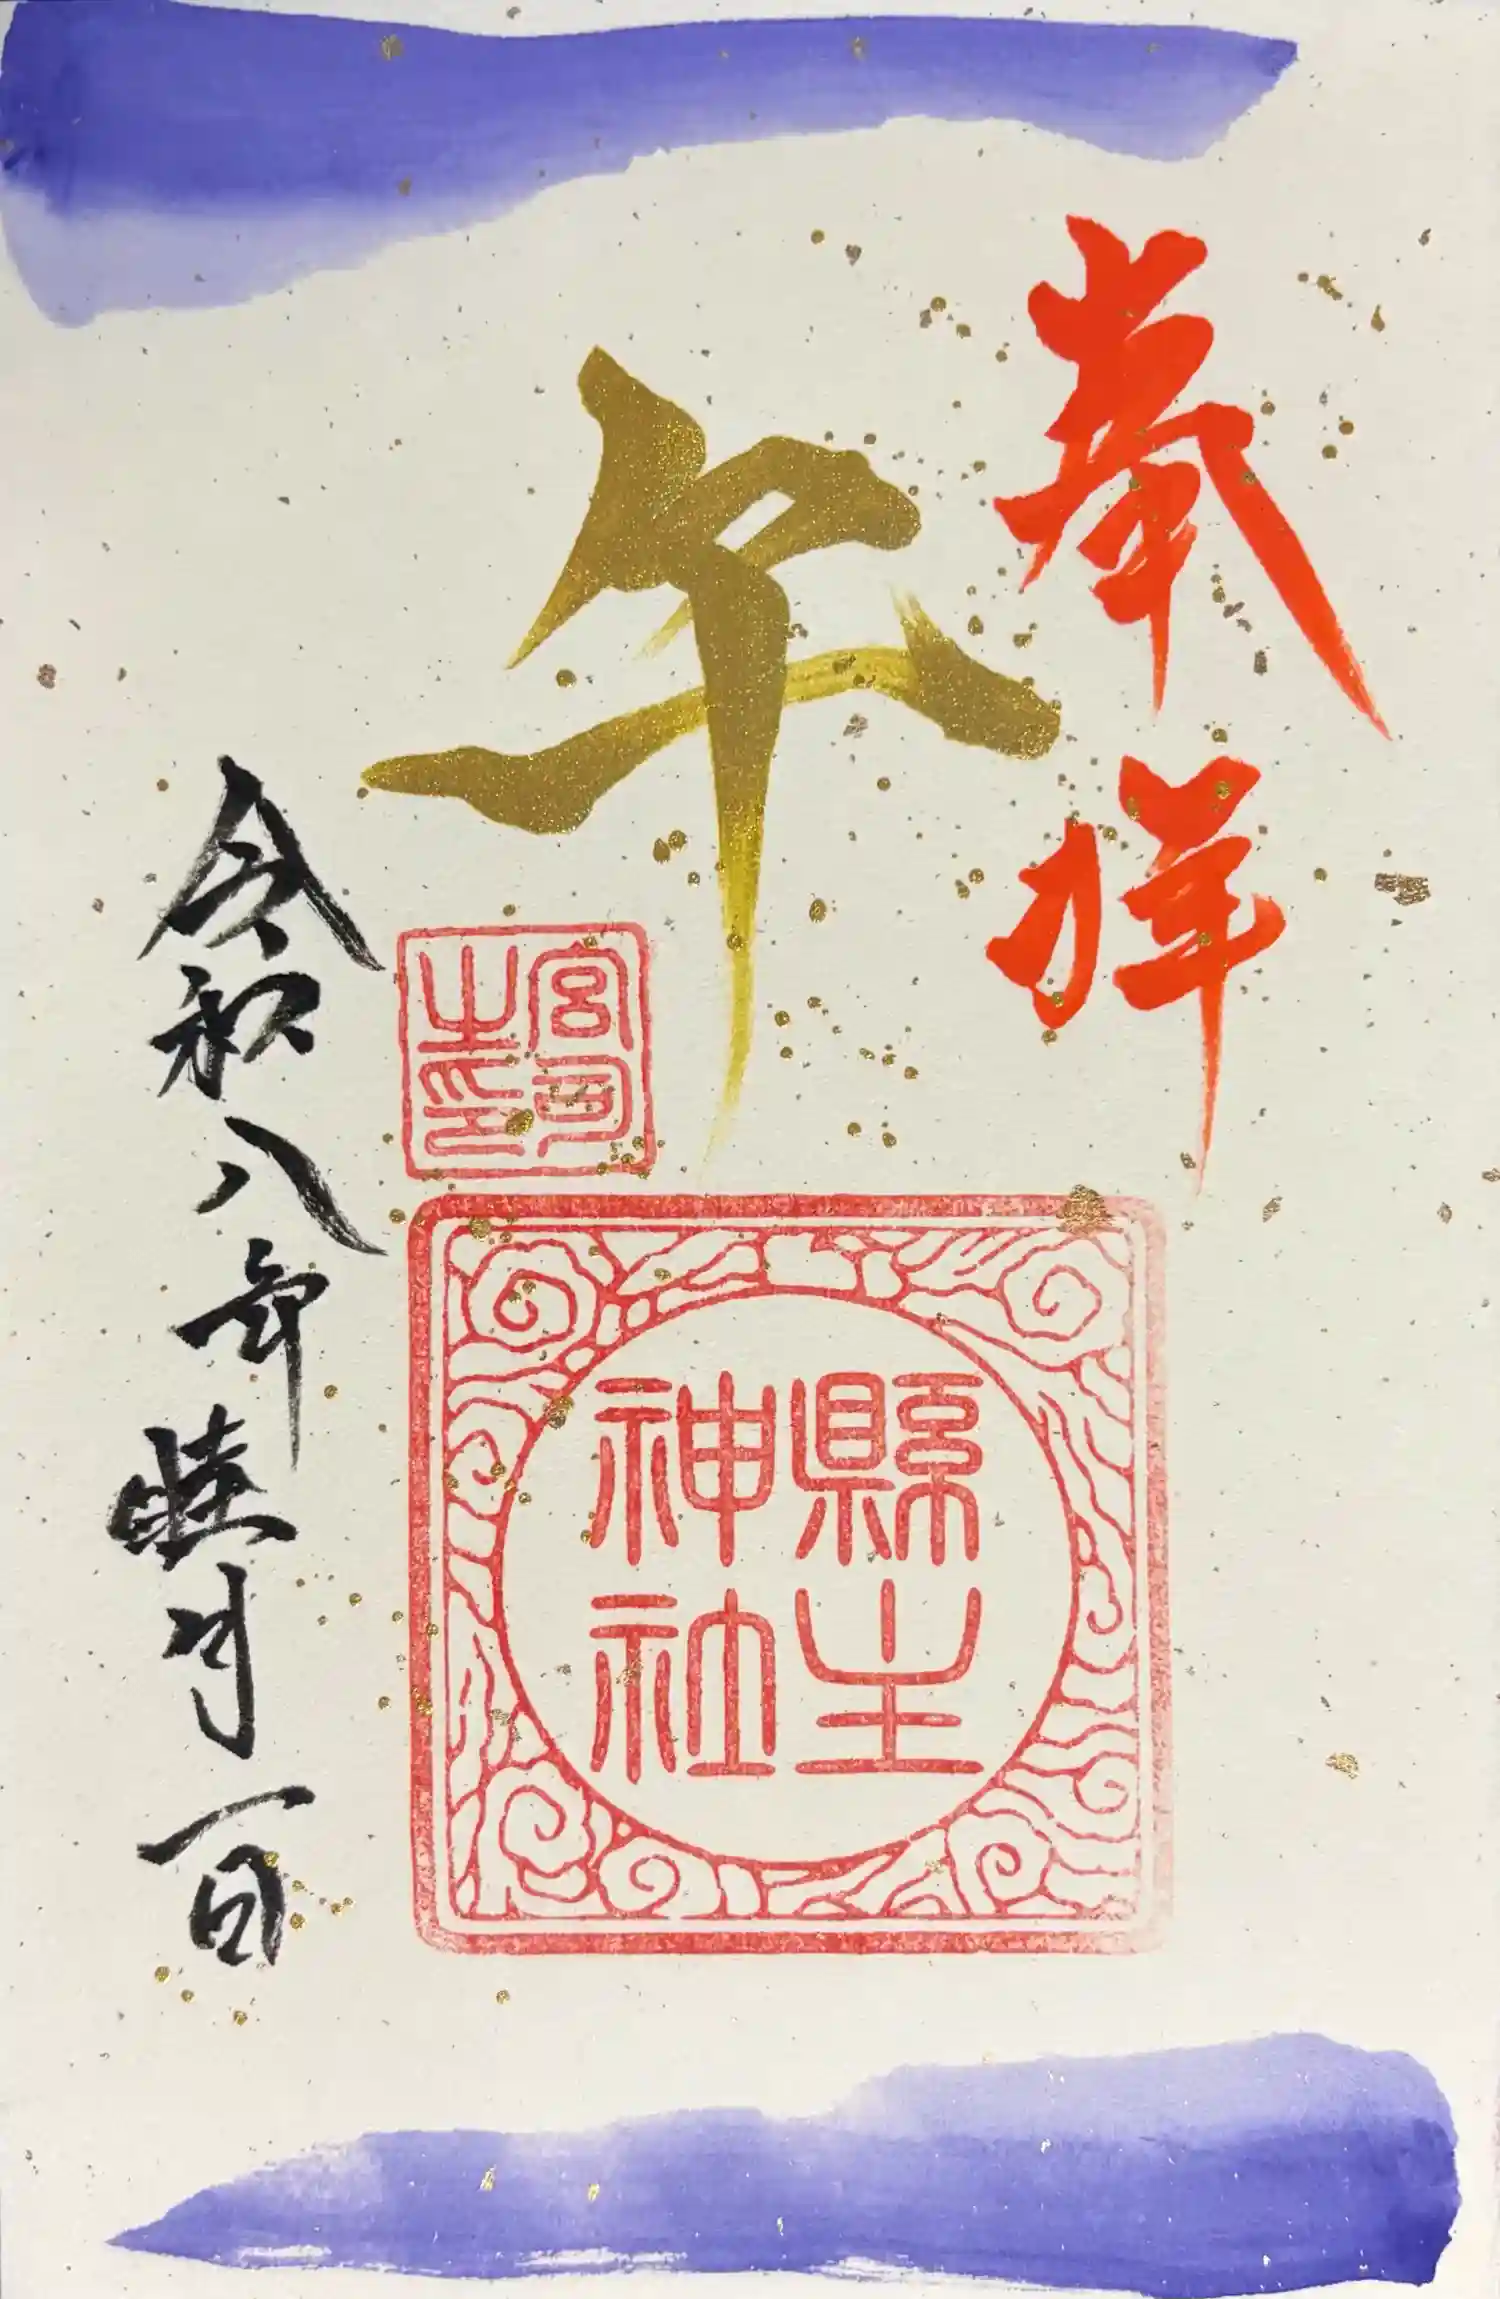 奉拝
午
宮司
之印
縣主
神社
令和八年睦月一日